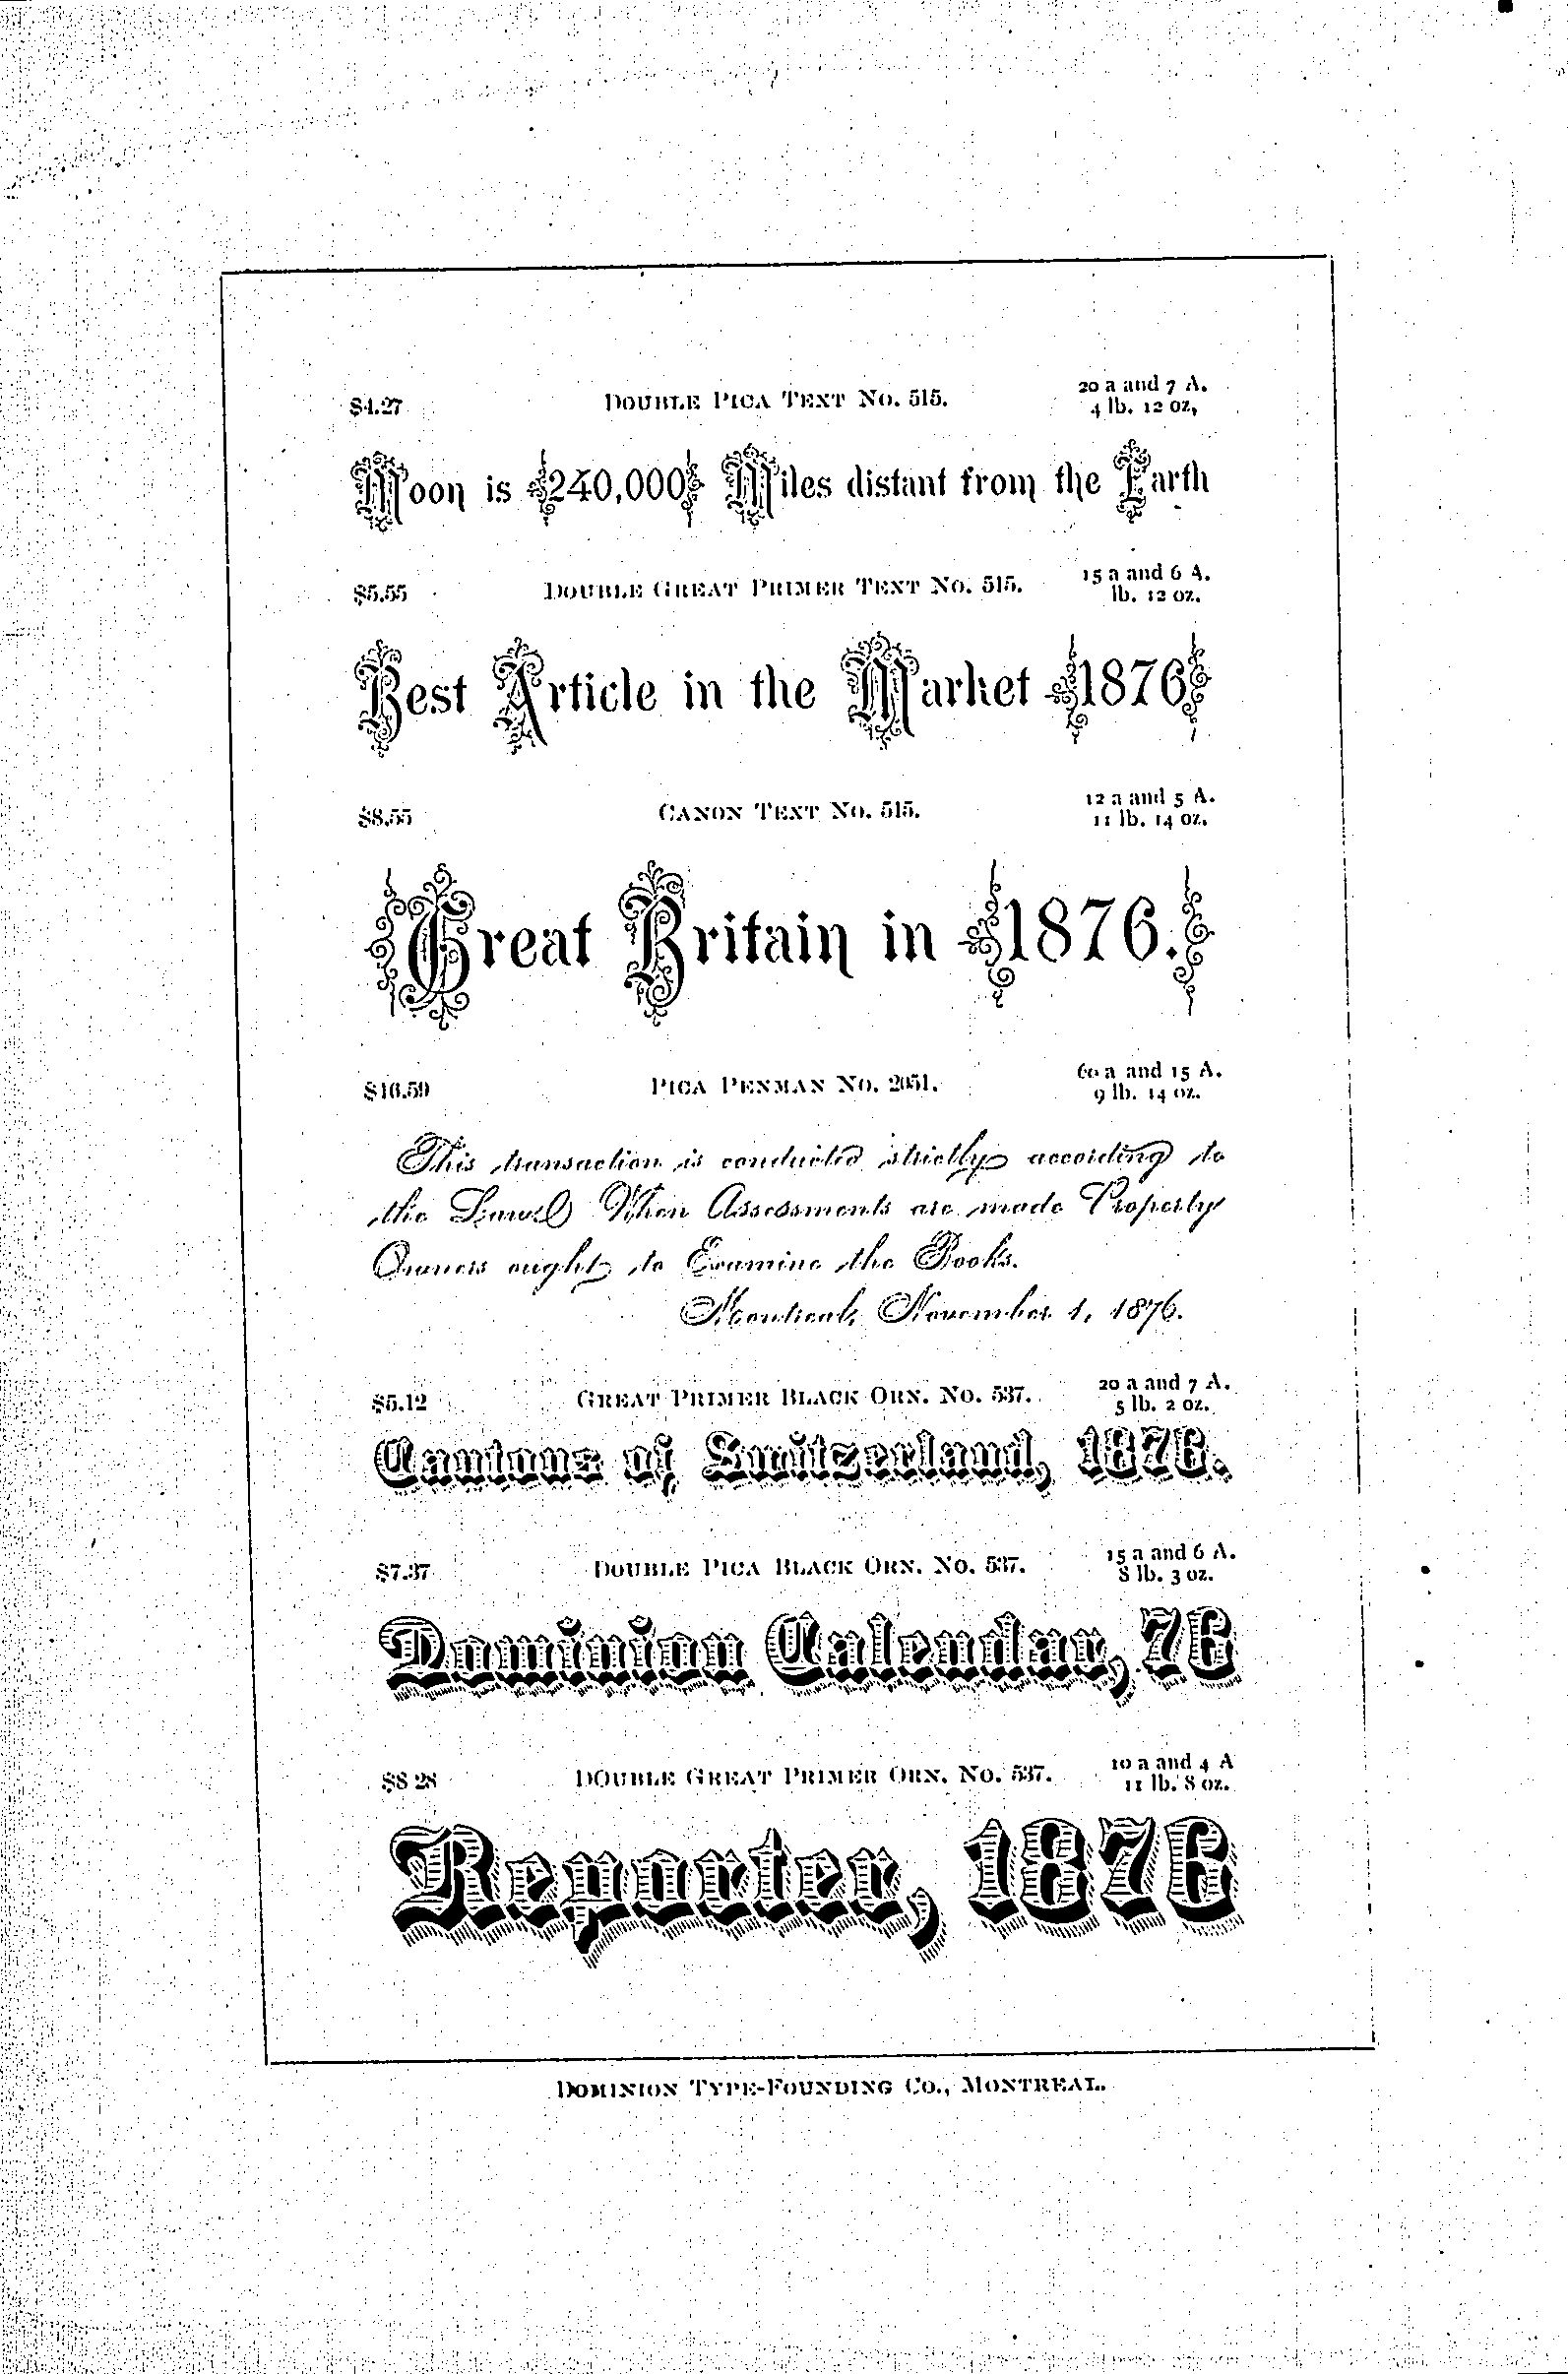 $4.27 DOUBLE PICA TEXT No. 515. 20 a and 7 A.
4 lb. 12 oz,
Moon is 240,000 Miles distant from the Earth
$5.55 DOUBLE GREAT PRIMER TEXT No. 515. 15 a and 6 A.
lb. 12 oz.
Best Article in the Market 1876
$8.55 CANON TEXT No. 515. 12 a and 5 A.
11 lb. 14 oz.
Great Britain in 1876.
$16.59 PICA PENMAN No. 2051. 60 a and 15 A.
9 lb. 14 oz.
This transaction is conducted strictly according to
the Laws When Assessments are made Property
Owners ought to Examine the Books.
Montreal, November 1, 1876.
$5.12 GREAT PRIMER BLACK ORN. No. 537. 20 a and 7 A.
5 lb. 2 oz.
Cantons of Switzerland, 1876.
$7.37 DOUBLE PICA BLACK ORN. No. 537. 15 a and 6 A.
8 lb. 3 oz.
Dominion Calendar, 76
$8 28 DOUBLE GREAT PRIMER ORN. No. 537. 10 a and 4 A
11 lb. 8 oz.
Reporter, 1876
DOMINION TYPE-FOUNDING CO., MONTREAL.